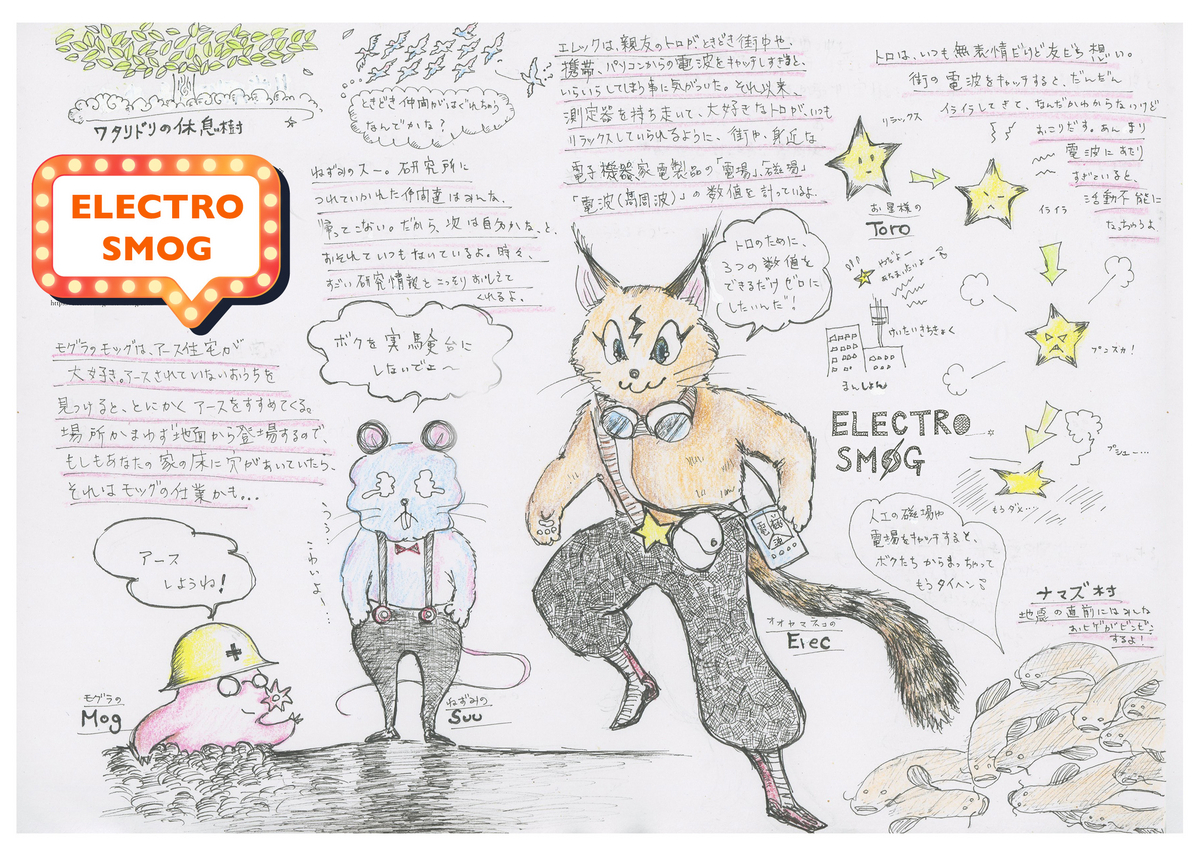 ワタリドリの休息樹
ときどき仲間がはぐれちゃう
なんでかな?
ELECTRO
SMOG
ねずみのスー。研究所に
つれていかれた仲間達はみんな、
帰ってこない。だから、次は自分かな、と、
おそれていつもないているよ。時々、
すごい研究情報をこっそりおしえて
くれるよ。
エレックは、親友のトロが、ときどき街中や、
携帯、パソコンからの電波をキャッチしすぎると、
いらいらしてしまう事に気がついた。それ以来、
測定器を持ち歩いて、大好きなトロが、いつも
リラックスしていられるように、街や、身近な
電子機器家電製品の「電場」、「磁場」
「電波(高周波)」の数値を計っているよ。
トロは、いつも無表情だけど友だち想い。
街の電波をキャッチすると、だんだん
イライラしてきて、なんだかわからないけど
おこりだす。あんまり
電波にあたり
すぎていると、
活動不能に
なっちゃうよ
リラックス
お星様の
Toro
イライラ
けいたいきちきょく
まんしょん
プンスカ!
プシュー…
もうダメ…
トロのために、
3つの数値を
できるだけゼロに
したいんだ!
モグラのモッグは、アース住宅が
大好き。アースされていないおうちを
見つけると、とにかくアースをすすめてくる。
場所かまわず地面から登場するので、
もしもあなたの家の床に穴があいていたら、
それはモッグの仕業かも…
ボクを実験台に
しないでよ〜
こわいよー!
アース
しようね!
モグラの
Mog
ねずみの
Suu
オオヤマネコの
Elec
ELECTRO
SMOG
人工の磁場や
電場をキャッチすると、
ボクたちからまっちゃって
もうタイヘン
ナマズ村
地震の直前にはみんな
おヒゲがビンビン
するよ!